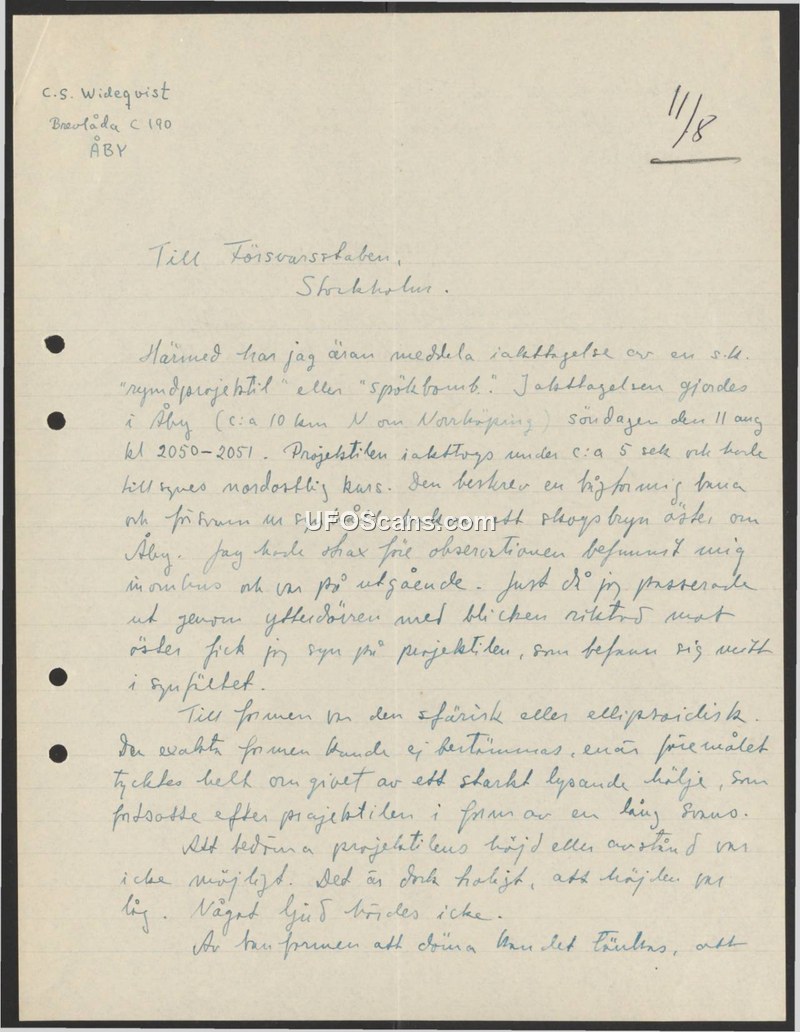 C.S. Wideqvist
Brevlåda C 190
ÅBY
11/8
Till Försvarsstaben,
Stockholm.
Härmed har jag äran meddela iakttagelse av en s.k.
"rymdprojektil" eller "spökbomb". Iakttagelsen gjordes
i Åby (c:a 10 km N om Norrköping) söndagen den 11 aug
kl 2050–2051. Projektilen iakttogs under c:a 5 sek och hade
till synes nordostlig kurs. Den beskrev en bågformig bana
och försvann ur ett skogsbryn öster om
UFOScans.com
Åby. Jag hade strax före observationen befunnit mig
inomhus och var på utgående. Just då jag passerade
ut genom ytterdörren med blicken riktad mot
öster fick jag syn på projektilen, som befann sig mitt
i synfältet.
Till formen var den sfärisk eller ellipsoidisk.
Den exakta formen kunde ej bestämmas, enär föremålet
tycktes helt omgivet av ett starkt lysande hölje, som
fortsatte efter projektilen i form av en lång svans.
Att bedöma projektilens höjd eller avstånd var
icke möjligt. Det är dock troligt, att höjden var
låg. Något ljud hördes icke.
Av banformen att döma kan det tänkas, att